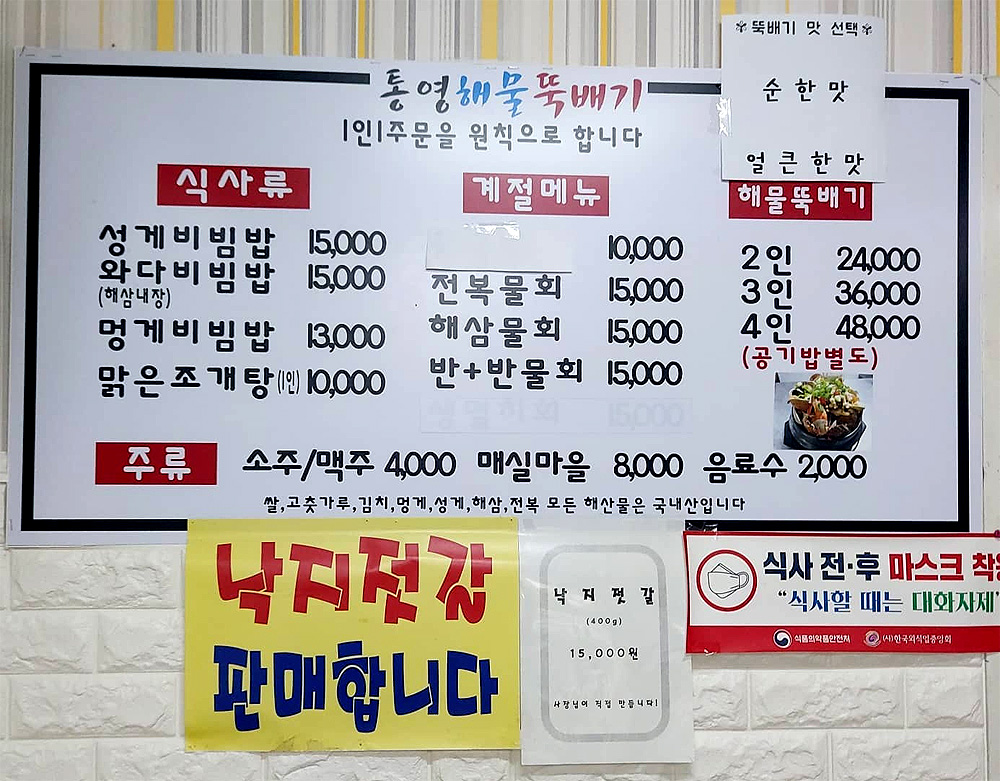 통영해물뚝배기
1인1주문을 원칙으로 합니다
식사류
성게비빔밥 15,000
와다비빔밥 15,000
(해삼내장)
멍게비빔밥 13,000
맑은조개탕(1인) 10,000
계절메뉴
10,000
전복물회 15,000
해삼물회 15,000
반+반물회 15,000
15,000
✾뚝배기 맛 선택✾
순한맛
얼큰한맛
해물뚝배기
2인 24,000
3인 36,000
4인 48,000
(공기밥별도)
주류 소주/맥주 4,000 매실마을 8,000 음료수 2,000
쌀,고춧가루,김치,멍게,성게,해삼,전복 모든 해산물은 국내산입니다
낙지젓갈
판매합니다
낙지젓갈
(400g)
15,000원
사장님이 직접 만듭니다!
식사 전·후 마스크 착용
"식사할 때는 대화자제"
식품의약품안전처 (사)한국외식업중앙회